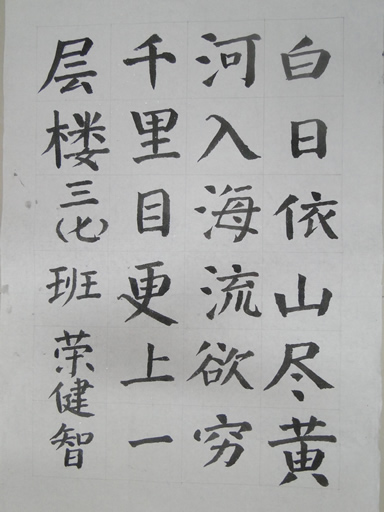 白日依山尽黄
河入海流欲穷
千里目更上一
层楼三(七)班荣健智